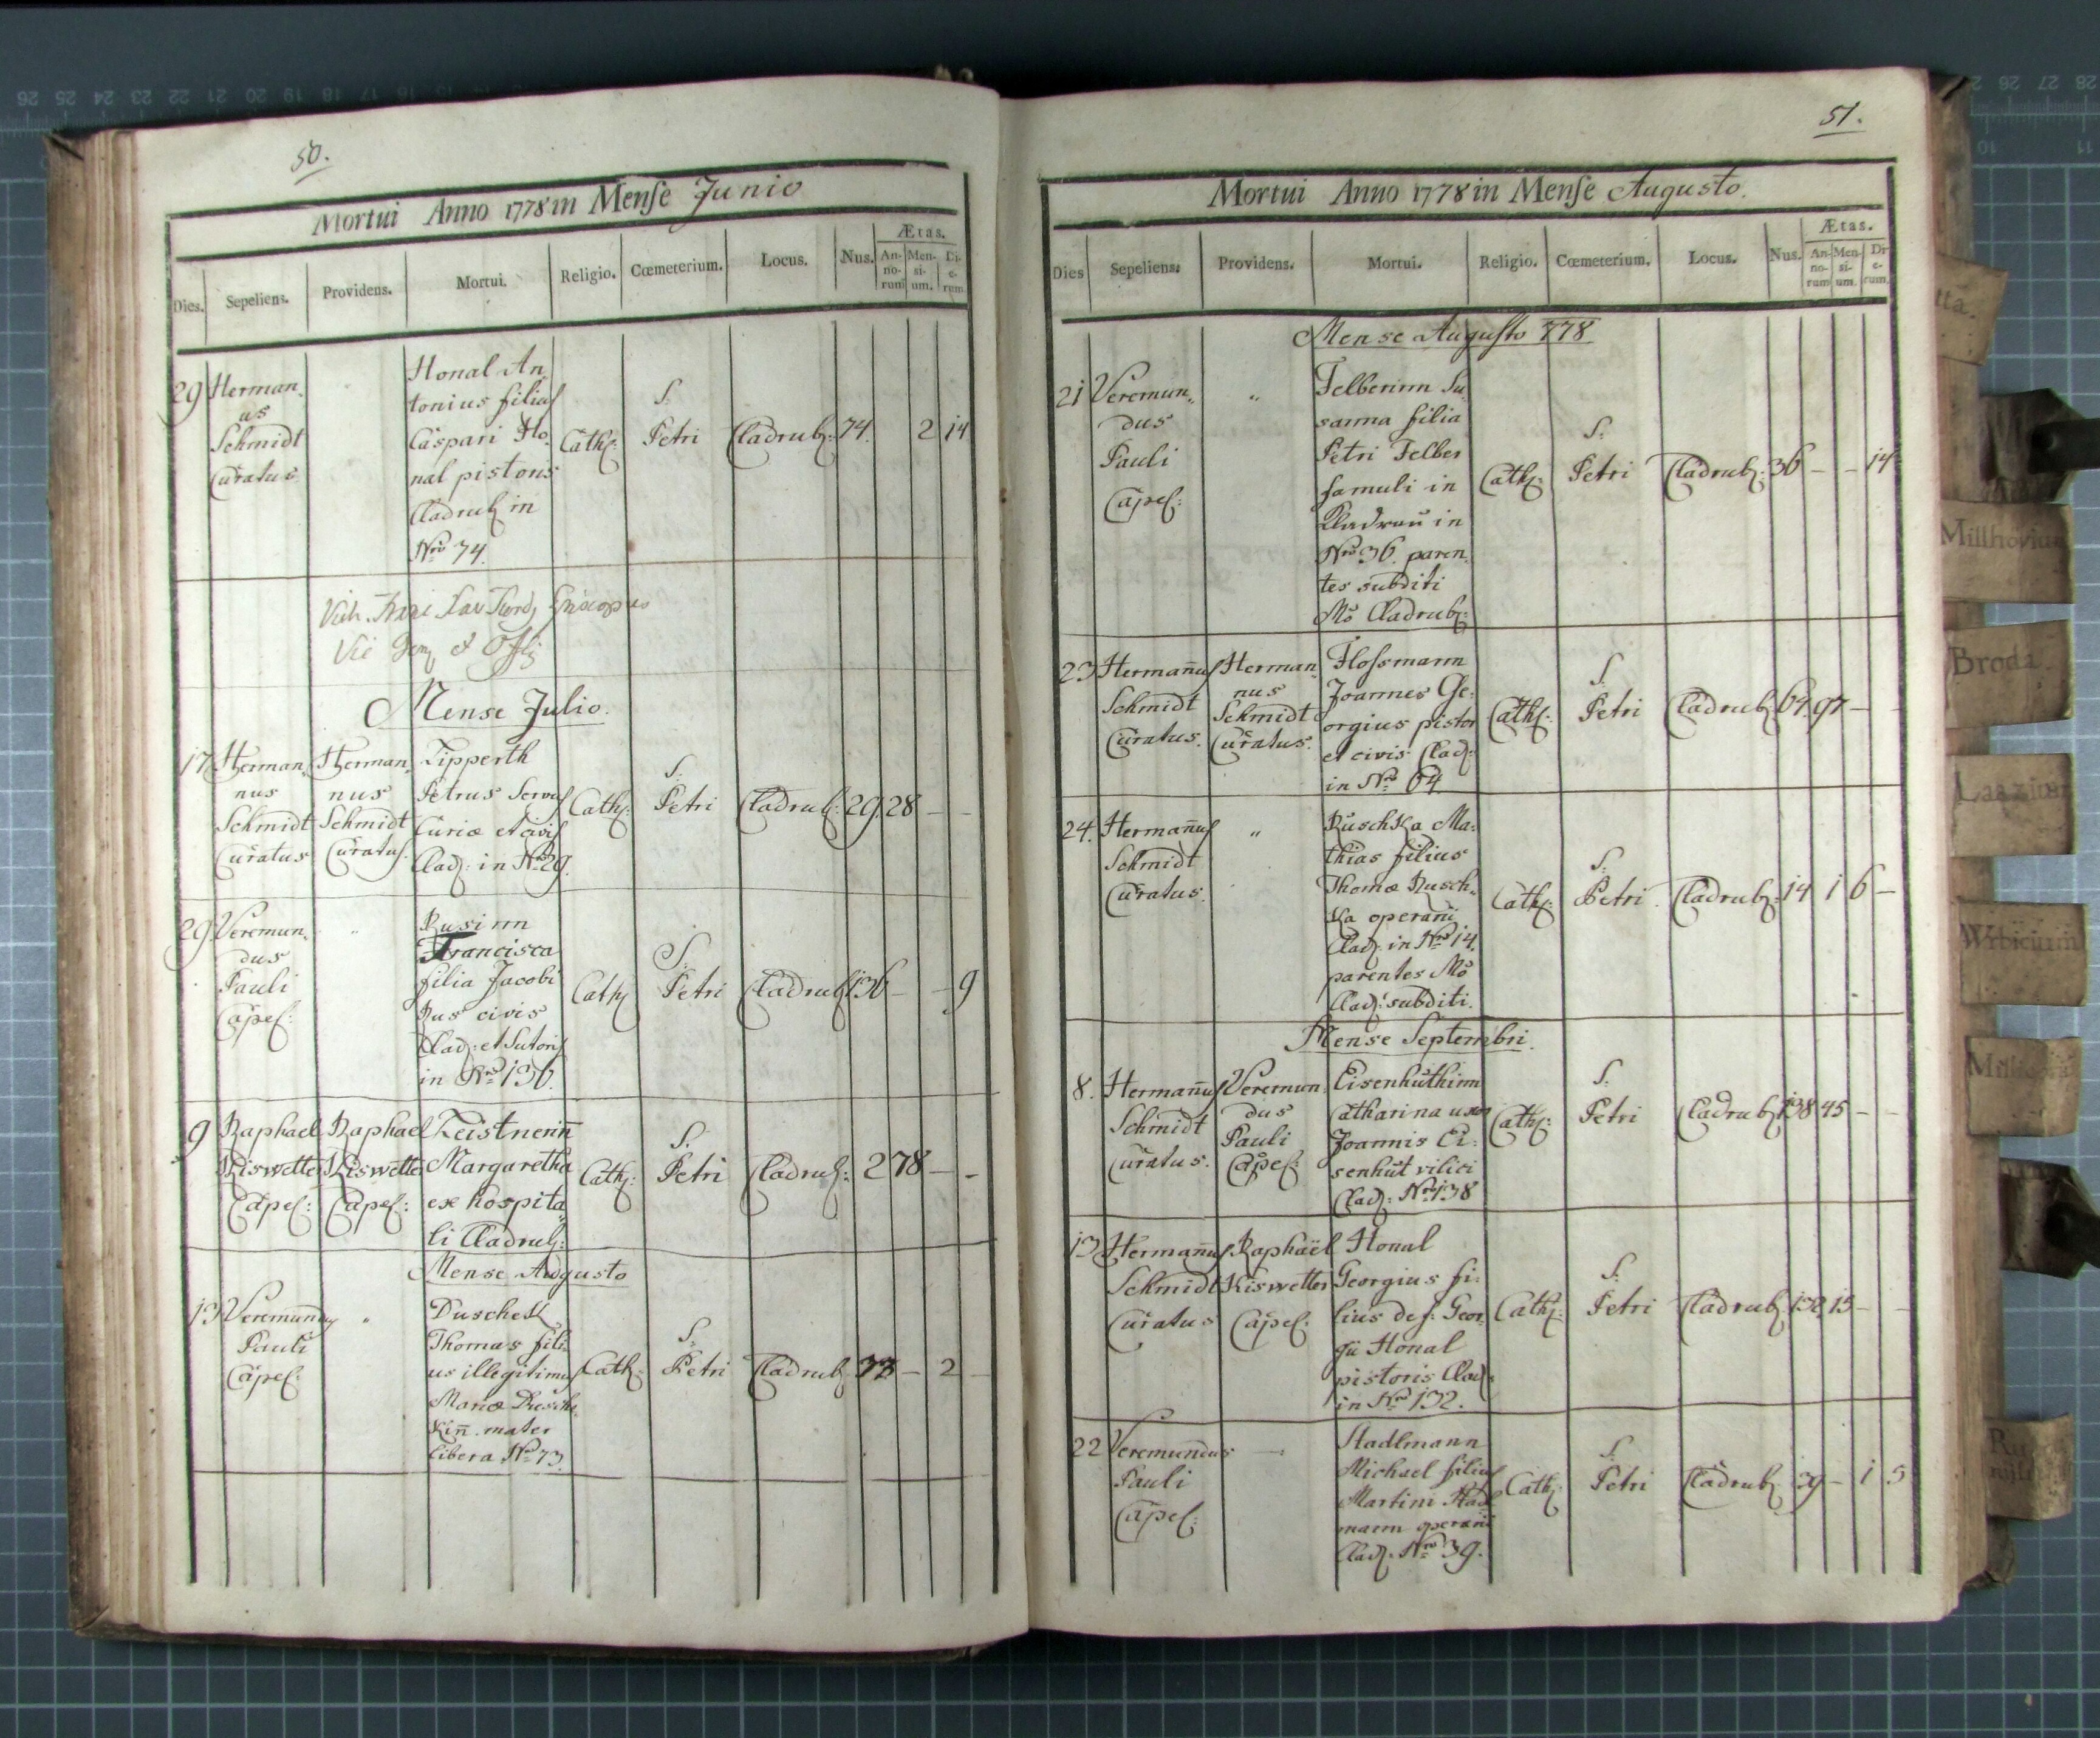 50.
Mortui Anno 1778 in Mense Junio
Dies. Sepeliens. Providens. Mortui. Religio. Cœmeterium. Locus. Nus. Ætas.
An-no-rum Men-si-um. Di-e-rum.
29 Herman,
us
Schmidt
Curatus
Honal An,
tonius filius
Caspari Ho,
nal pistoris
Cladrub: in
Nro 74.
Cath: S. Petri Cladrub: 74. 2 14
Episcopus
Mense Julio.
17 Herman,
nus
Schmidt
Curatus
Herman,
nus
Schmidt
Curatus.
Lipperth
Petrus Servus
Curiæ et civis
Clad: in Nro 29.
Cath: S: Petri Cladrub: 29. 28 – –
29. Veremun,
dus
Pauli
Capel:
„
Rusinn
Francisca
filia Jacobi
Rus civis
Clad: et Sutoris
in Nro 136.
Cath: S: Petri Cladrub: 136 – – 9
9 Raphael
Kiswetter
Capel:
Raphael
Kiswetter
Capel:
Leistnerin̄
Margaretha
ex hospita,
li Cladrub:
Cath: S. Petri Cladrub: 2 78 – –
Mense Augusto
13 Veremundus
Pauli
Capel:
„
Duschek
Thomas fili,
us illegitimus
Mariæ Dusche,
kin̄. mater
libera Nro 73.
Cath: S: Petri Cladrub: 73 – 2 –
51.
Mortui Anno 1778 in Mense Augusto.
Dies Sepeliens. Providens. Mortui. Religio. Cœmeterium. Locus. Nus. Ætas.
An-no-rum Men-si-um. Di-e-rum.
Mense Augusto 778
21 Veremun,
dus
Pauli
Capel:
„
Felberinn Su,
sanna filia
Petri Felber
famuli in
Kladrau in
Nro 36. paren,
tes subditi
Mo Cladrub:
Cath: S: Petri Cladrub: 36 – – 14
23 Herman̄us
Schmidt
Curatus.
Herman,
nus
Schmidt
Curatus.
Flossmann
Joannes Ge:
orgius pistor
et civis Clad:
in Nro 64
Cath: S: Petri Cladrub: 64. 97 –
24. Herman̄us
Schmidt
Curatus.
„
Ruschka Ma:
thias filius
Thomæ Rusch,
ka operarii
Clad: in Nro 14.
parentes Mo
Clad: subditi.
Cath: S: Petri Cladrub: 14 1 6 –
Mense Septembri.
8. Herman̄us
Schmidt
Curatus.
Veremun,
dus
Pauli
Capel:
Eisenhuthinn
Catharina uxor
Joannis Ei:
senhut vilici
Clad: Nro 138
Cath: S: Petri Cladrub: 138 45 – –
13 Herman̄us
Schmidt
Curatus
Raphaël
Kiswetter
Capel:
Honal
Georgius fi:
lius def: Geor:
gii Honal
pistoris Clad:
in Nro 132.
Cath: S: Petri Cladrub: 132 15 – –
22 Veremundus
Pauli
Capel:
–:
Stadlmann
Michael filius
Martini Stad
mann operarii
Clad: Nro 39.
Cath: S: Petri Cladrub: 39 – 1 5
Millhovium
Broda.
Wrbicium